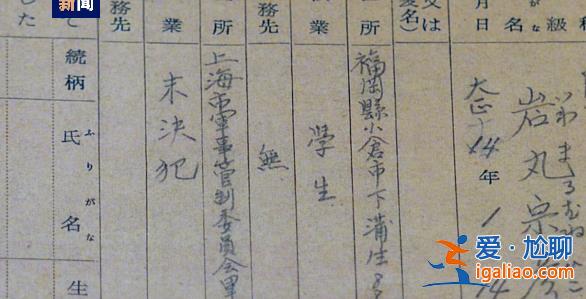 新闻
級
名
がな
岩丸宗
月日
大正14年1
14
又は
名)
所
福岡縣小倉市下蒲生
業
學生
務先
無
所
上海市軍事管制委員会
業
未決犯
務先
て
続柄
ふりがな
氏名
した
生
爱·尬聊
igaliao.com